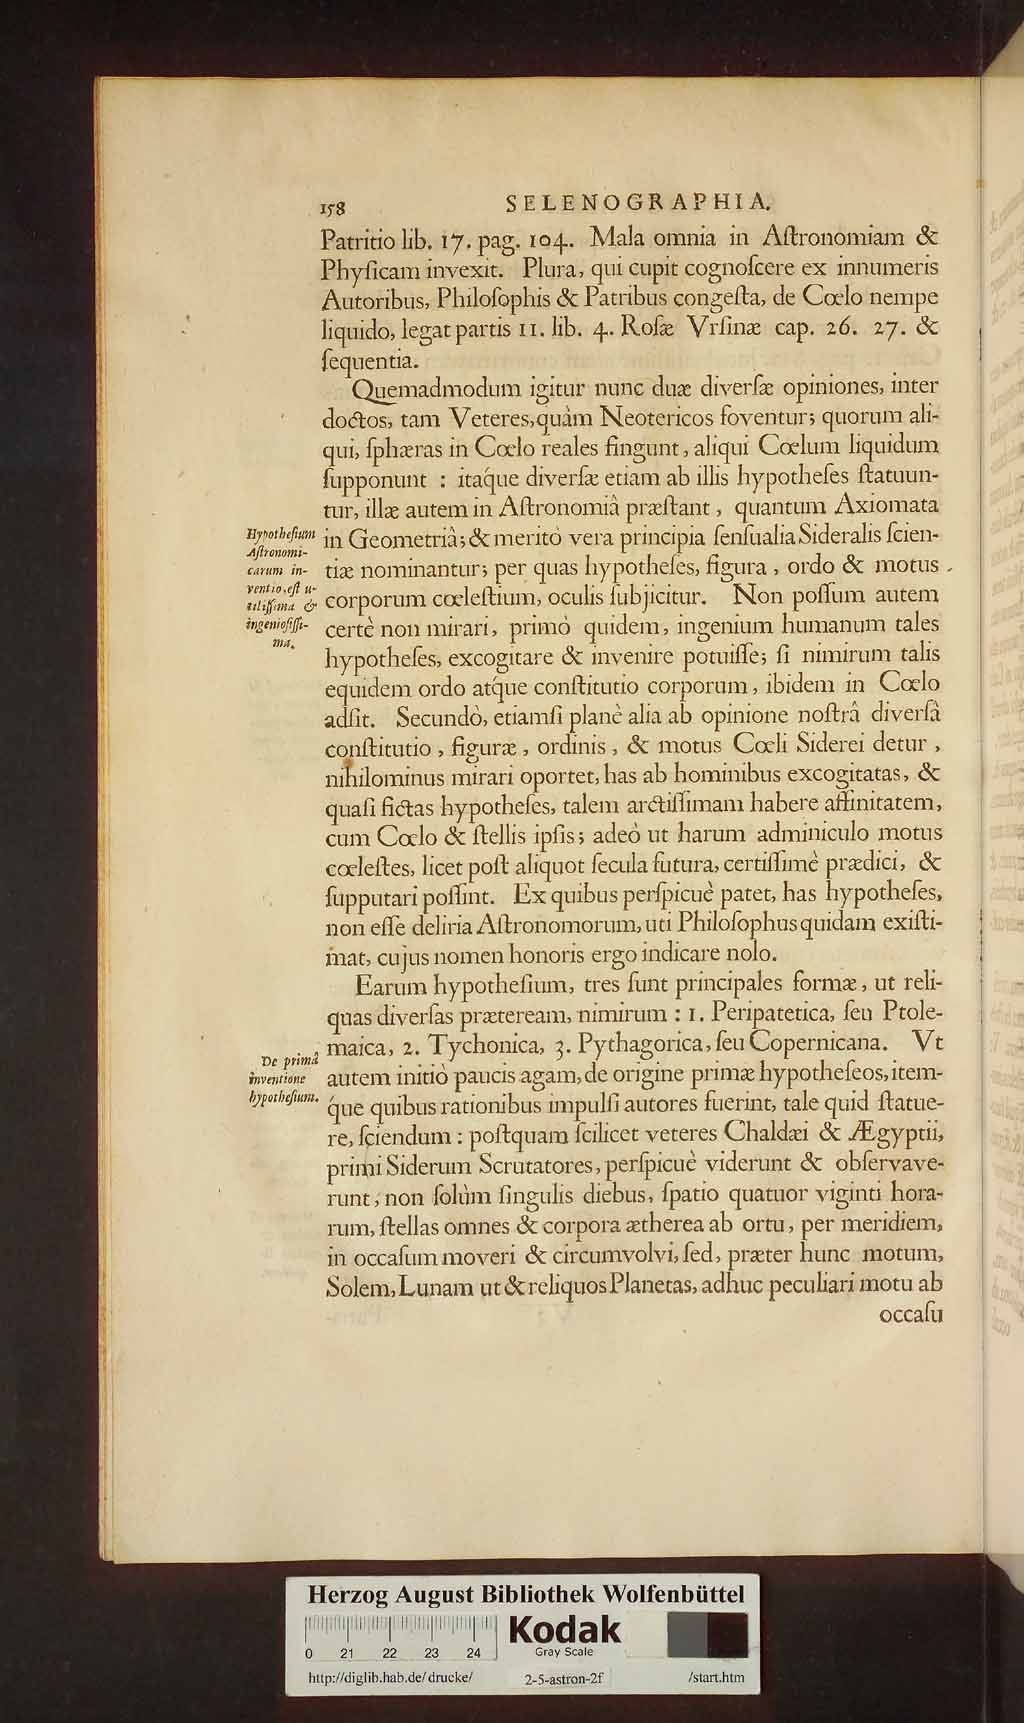 158 SELENOGRAPHIA.
Patritio lib. 17. pag. 104. Mala omnia in Aſtronomiam &
Phyſicam invexit. Plura, qui cupit cognoſcere ex innumeris
Autoribus, Philoſophis & Patribus congeſta, de Cœlo nempe
liquido, legat partis 11. lib. 4. Roſæ Vrſinæ cap. 26. 27. &
ſequentia.
Quemadmodum igitur nunc duæ diverſæ opiniones, inter
doctos, tam Veteres, quàm Neotericos foventur; quorum ali-
qui, ſphæras in Cœlo reales fingunt, aliqui Cœlum liquidum
ſupponunt : itaq́ue diverſæ etiam ab illis hypotheſes ſtatuun-
tur, illæ autem in Aſtronomiâ præſtant, quantum Axiomata
Hypotheſium
Aſtronomi-
carum in-
ventio, eſt u-
tiliſſima &
ingenioſiſſi-
ma.
in Geometriâ; & meritò vera principia ſenſualia Sideralis ſcien-
tiæ nominantur; per quas hypotheſes, figura, ordo & motus
corporum cœleſtium, oculis ſubjicitur. Non poſſum autem
certè non mirari, primò quidem, ingenium humanum tales
hypotheſes, excogitare & invenire potuiſſe; ſi nimirum talis
equidem ordo atq́ue conſtitutio corporum, ibidem in Cœlo
adſit. Secundò, etiamſi planè alia ab opinione noſtrâ diverſâ
conſtitutio, figuræ, ordinis, & motus Cœli Siderei detur,
nihilominus mirari oportet, has ab hominibus excogitatas, &
quaſi fictas hypotheſes, talem arctiſſimam habere affinitatem,
cum Cœlo & ſtellis ipſis; adeò ut harum adminiculo motus
cœleſtes, licet poſt aliquot ſecula futura, certiſſimè prædici, &
ſupputari poſſint. Ex quibus perſpicuè patet, has hypotheſes,
non eſſe deliria Aſtronomorum, uti Philoſophus quidam exiſti-
mat, cujus nomen honoris ergo indicare nolo.
Earum hypotheſium, tres ſunt principales formæ, ut reli-
quas diverſas præteream, nimirum : 1. Peripatetica, ſeu Ptole-
maica, 2. Tychonica, 3. Pythagorica, ſeu Copernicana. Vt
De primâ
inventione
hypotheſium.
autem initiò paucis agam, de origine primæ hypotheſeos, item-
q́ue quibus rationibus impulſi autores fuerint, tale quid ſtatue-
re, ſciendum : poſtquam ſcilicet veteres Chaldæi & Ægyptii,
primi Siderum Scrutatores, perſpicuè viderunt & obſervave-
runt, non ſolùm ſingulis diebus, ſpatio quatuor viginti hora-
rum, ſtellas omnes & corpora ætherea ab ortu, per meridiem,
in occaſum moveri & circumvolvi, ſed, præter hunc motum,
Solem, Lunam ut & reliquos Planetas, adhuc peculiari motu ab
occaſu
Herzog August Bibliothek Wolfenbüttel
0 21 22 23 24
Kodak
Gray Scale
http://diglib.hab.de/drucke/ 2-5-astron-2f /start.htm